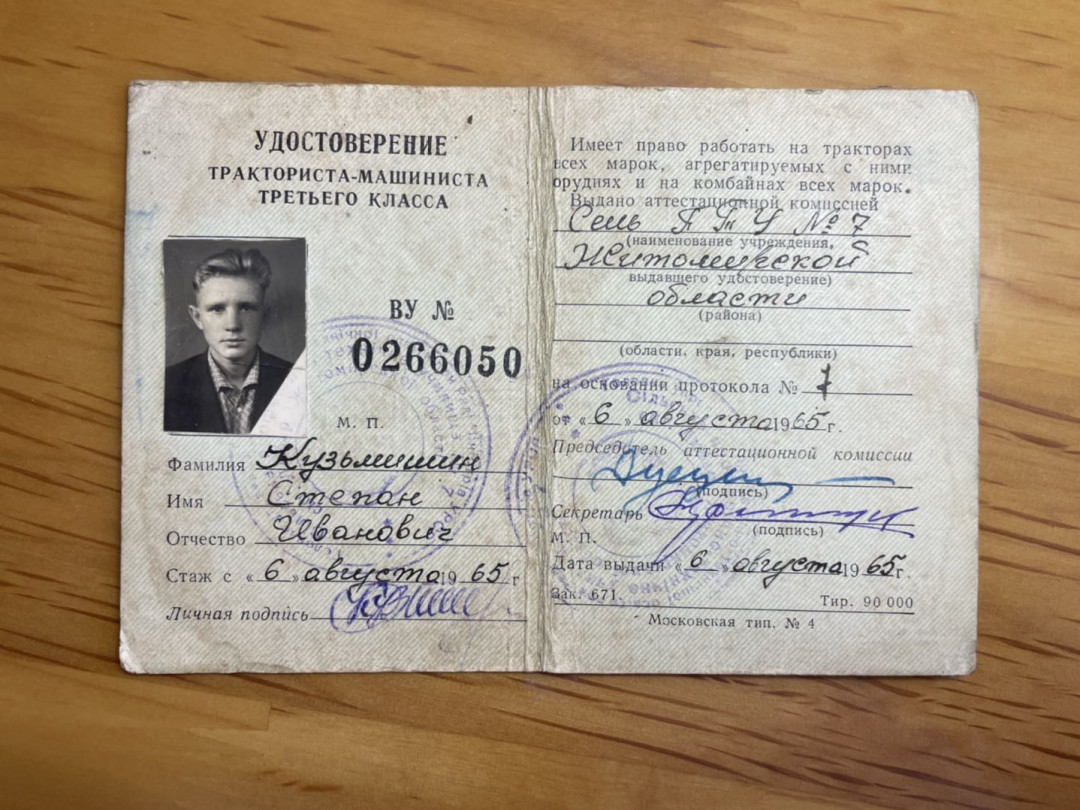 УДОСТОВЕРЕНИЕ
ТРАКТОРИСТА-МАШИНИСТА
ТРЕТЬЕГО КЛАССА
ВУ №
0266050
М. П.
Фамилия Кузьмишин
Имя Степан
Отчество Иванович
Стаж с «6» августа 1965 г
Личная подпись
Имеет право работать на тракторах
всех марок, агрегатируемых с ними
орудиях и на комбайнах всех марок.
Выдано аттестационной комиссией
Сель ПТУ № 7
(наименование учреждения,
Житомирской
выдавшего удостоверение)
области
(района)
(области, края, республики)
на основании протокола № 7
от «6» августа 1965 г.
Председатель аттестационной комиссии
(подпись)
Секретарь
(подпись)
М. П.
Дата выдачи «6» августа 1965 г.
Зак. 671.
Тир. 90 000
Московская тип. № 4